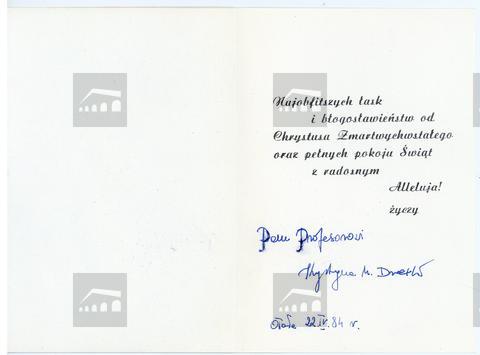 Najobfitszych łask
i błogosławieństw od
Chrystusa Zmartwychwstałego
oraz pełnych pokoju Świąt
z radosnym
Alleluja!
życzy
Panu Profesorowi
Krystyna M.
22 IV. 84 r.